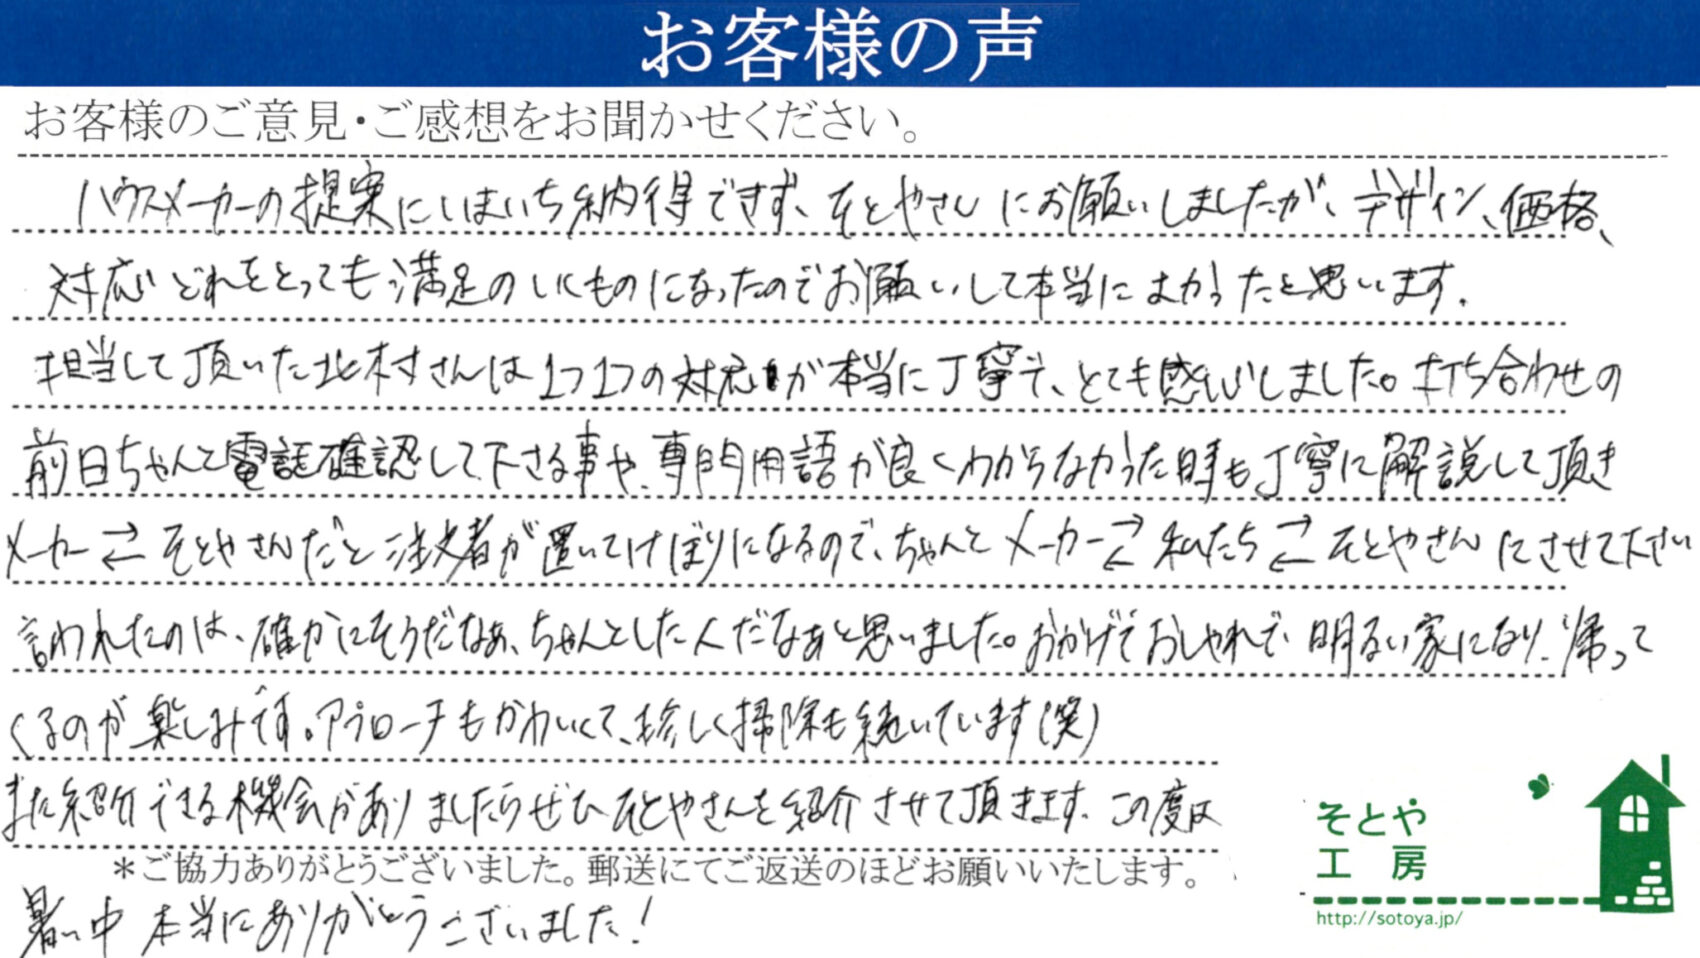 お客様の声
お客様のご意見・ご感想をお聞かせください。
ハウスメーカーの提案にいまいち納得できず、そとやさんにお願いしましたが、デザイン、価格、
対応どれをとっても満足のいくものになったのでお願いして本当によかったと思います。
担当して頂いた北村さんは1つ1つの対応が本当に丁寧で、とても感心しました。打ち合わせの
前日ちゃんと電話確認して下さる事や、専門用語が良くわからなかった時も丁寧に解説して頂き
メーカー⇄そとやさんだと注文者が置いてけぼりになるので、ちゃんとメーカー⇄私たち⇄そとやさんにさせて下さい
言われたのは、確かにそうだなぁ、ちゃんとした人だなぁと思いました。おかげでおしゃれで明るい家になり、帰って
くるのが楽しみです。アプローチもかわいくて、珍しく掃除も続いています(笑)
また紹介できる機会がありましたらぜひそとやさんを紹介させて頂きます。この度は
＊ご協力ありがとうございました。郵送にてご返送のほどお願いいたします。
暑い中 本当にありがとうございました!
そとや
工房
http://sotoya.jp/